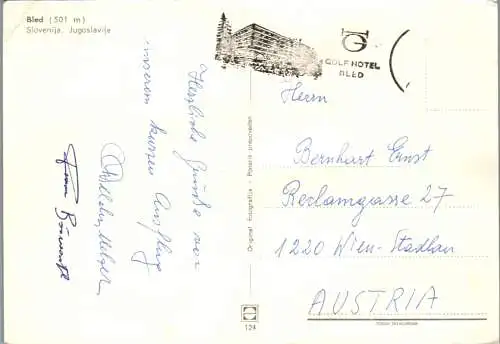 Bled (501 m)
Slovenija, Jugoslavija
GOLF HOTEL
BLED
Herzliche Grüße von
unserem kurzen Ausflug
Herrn
Bernhart Ernst
Reclamgasse 27
1220 Wien-Stadlau
AUSTRIA
Original fotografija - Ponatis prepovedan
124